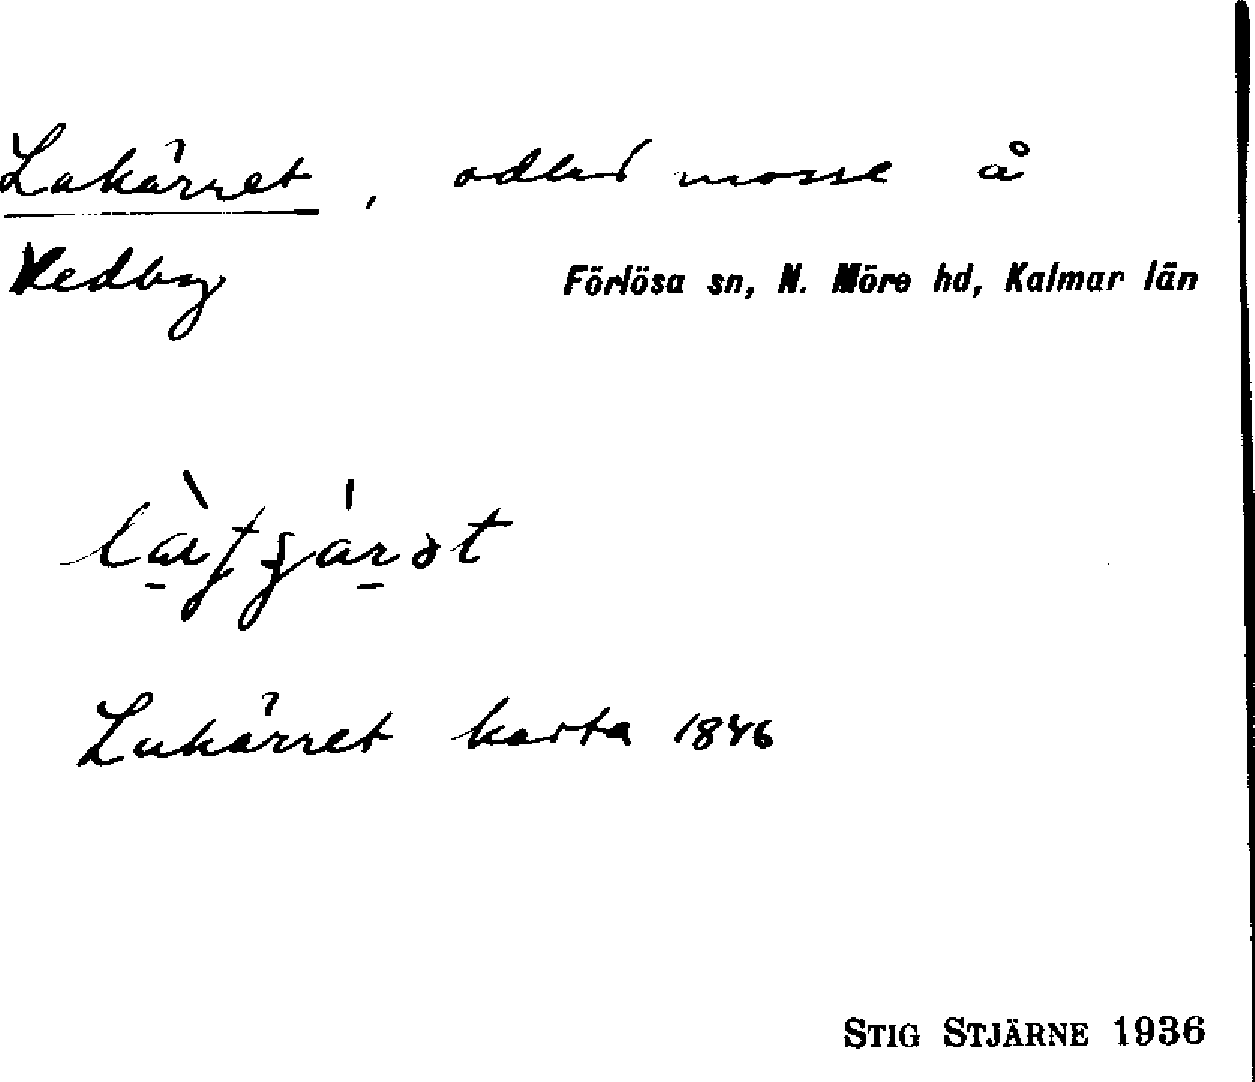 Lukärret, odlad mosse å
Vedby Förlösa sn, N. Möre hd, Kalmar län
Lukärret karta 1846
STIG STJÄRNE 1936